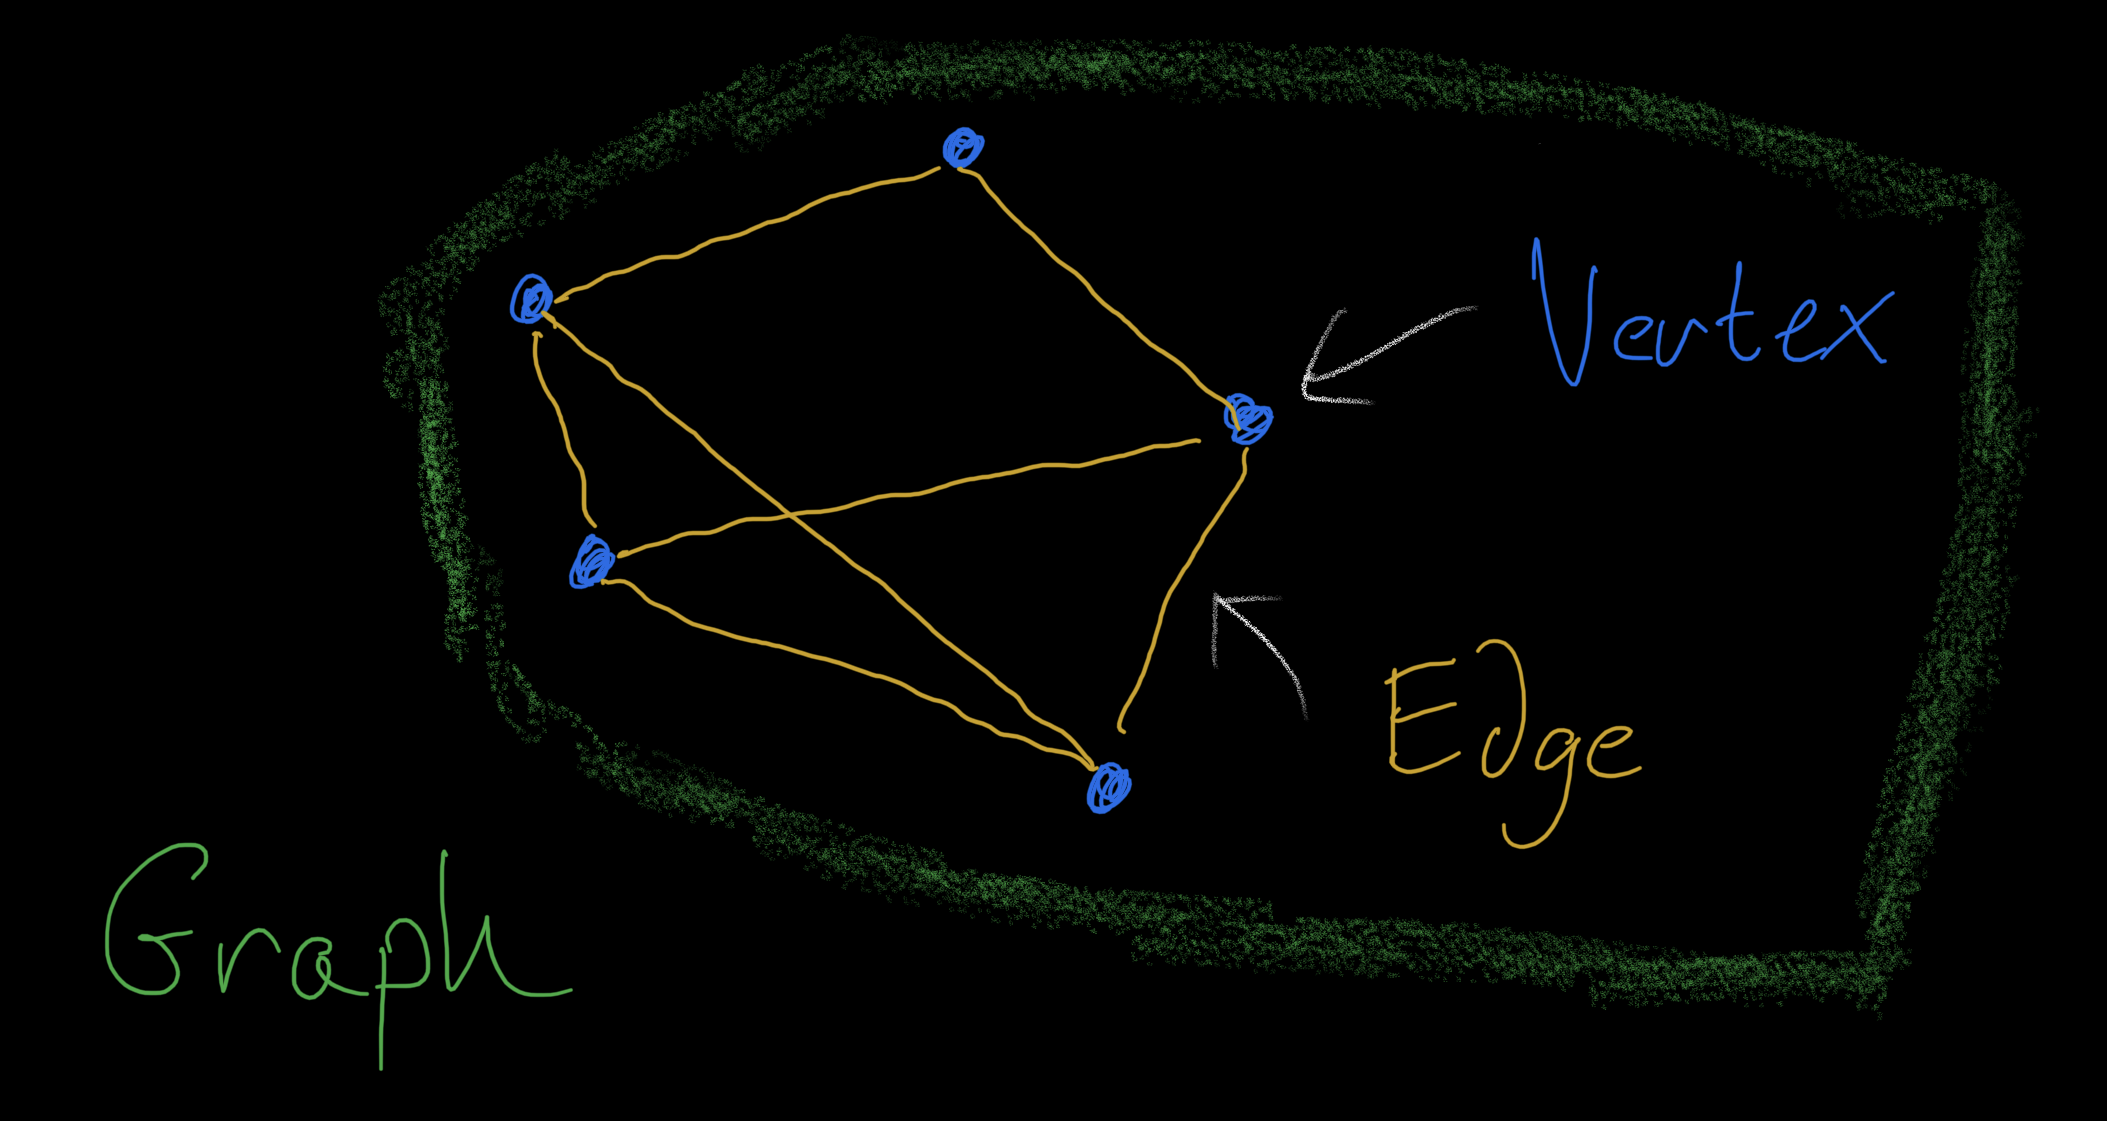 Vertex
Edge
Graph